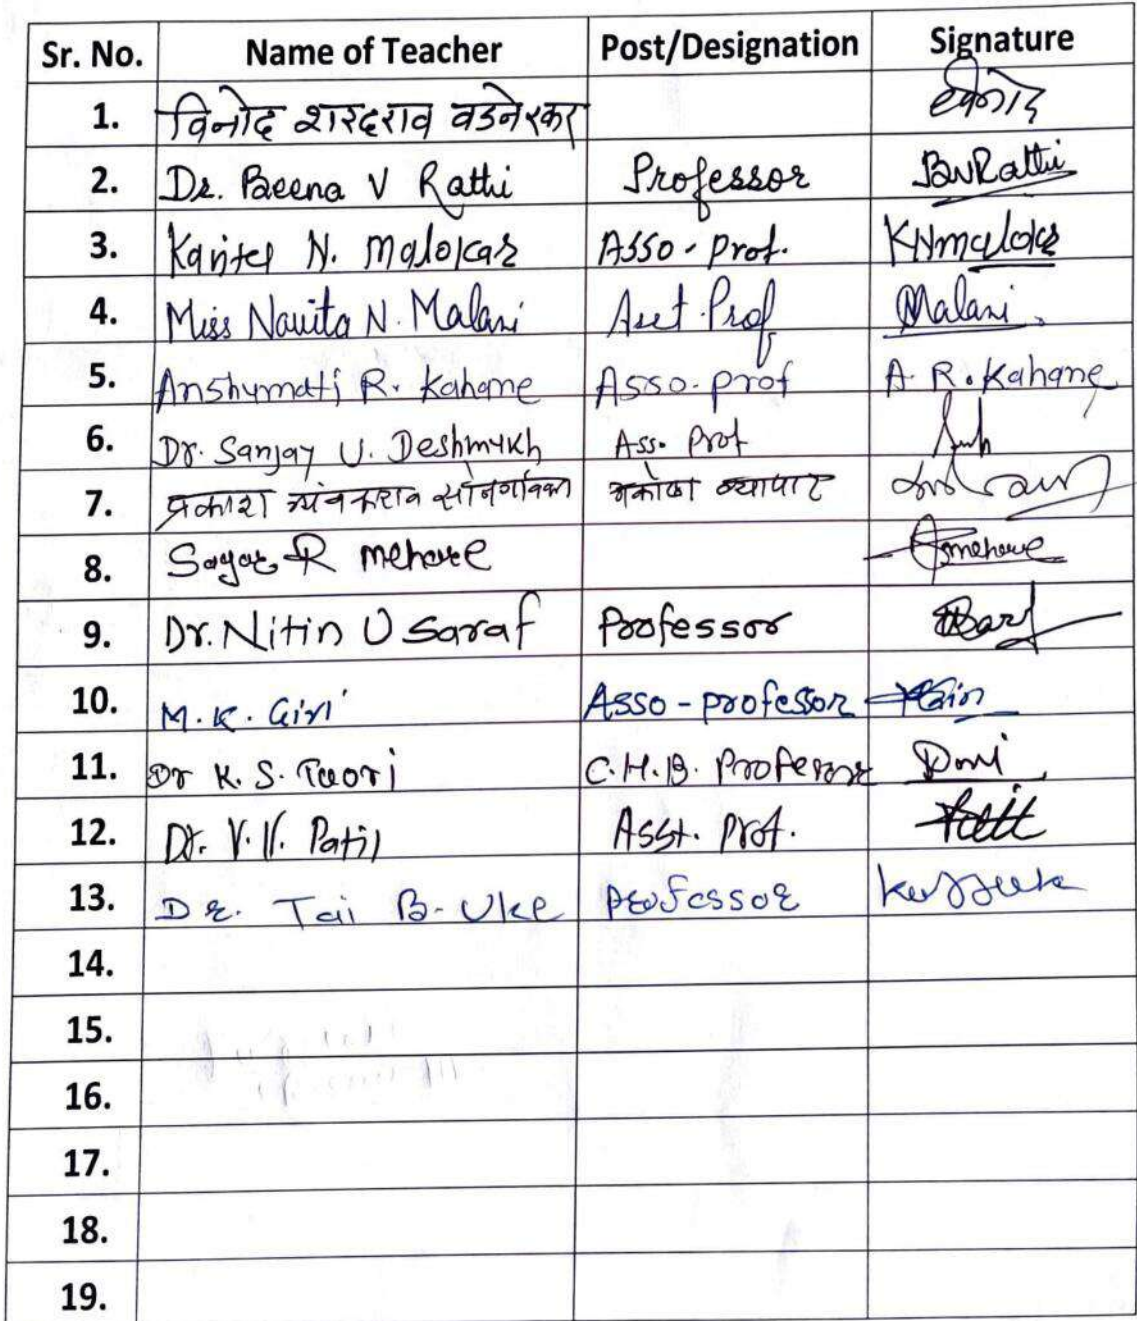 Sr. No. Name of Teacher Post/Designation Signature
1. विनोद शरदराव वडनेरकर
2. Dr. Beena V Rathi Professor BVRathi
3. N. Malokar Asso-prof. KNmalokar
4. Miss Navita N. Malani Asst. Prof Malani
5. Anshumati R. Kahane Asso. prof A. R. Kahane
6. Dr. Sanjay U. Deshmukh Ass. Prof
7. प्रकाश त्र्यंबकराव
8. Sagar R mehare mehare
9. Dr. Nitin U Saraf Professor
10. M. K. Giri Asso-professor
11. Dr K. S. Taori C.H.B. Professor
12. Dr. V. V. Patil Asst. prof.
13. Dr. Tai B. Uke Professor
14.
15.
16.
17.
18.
19.